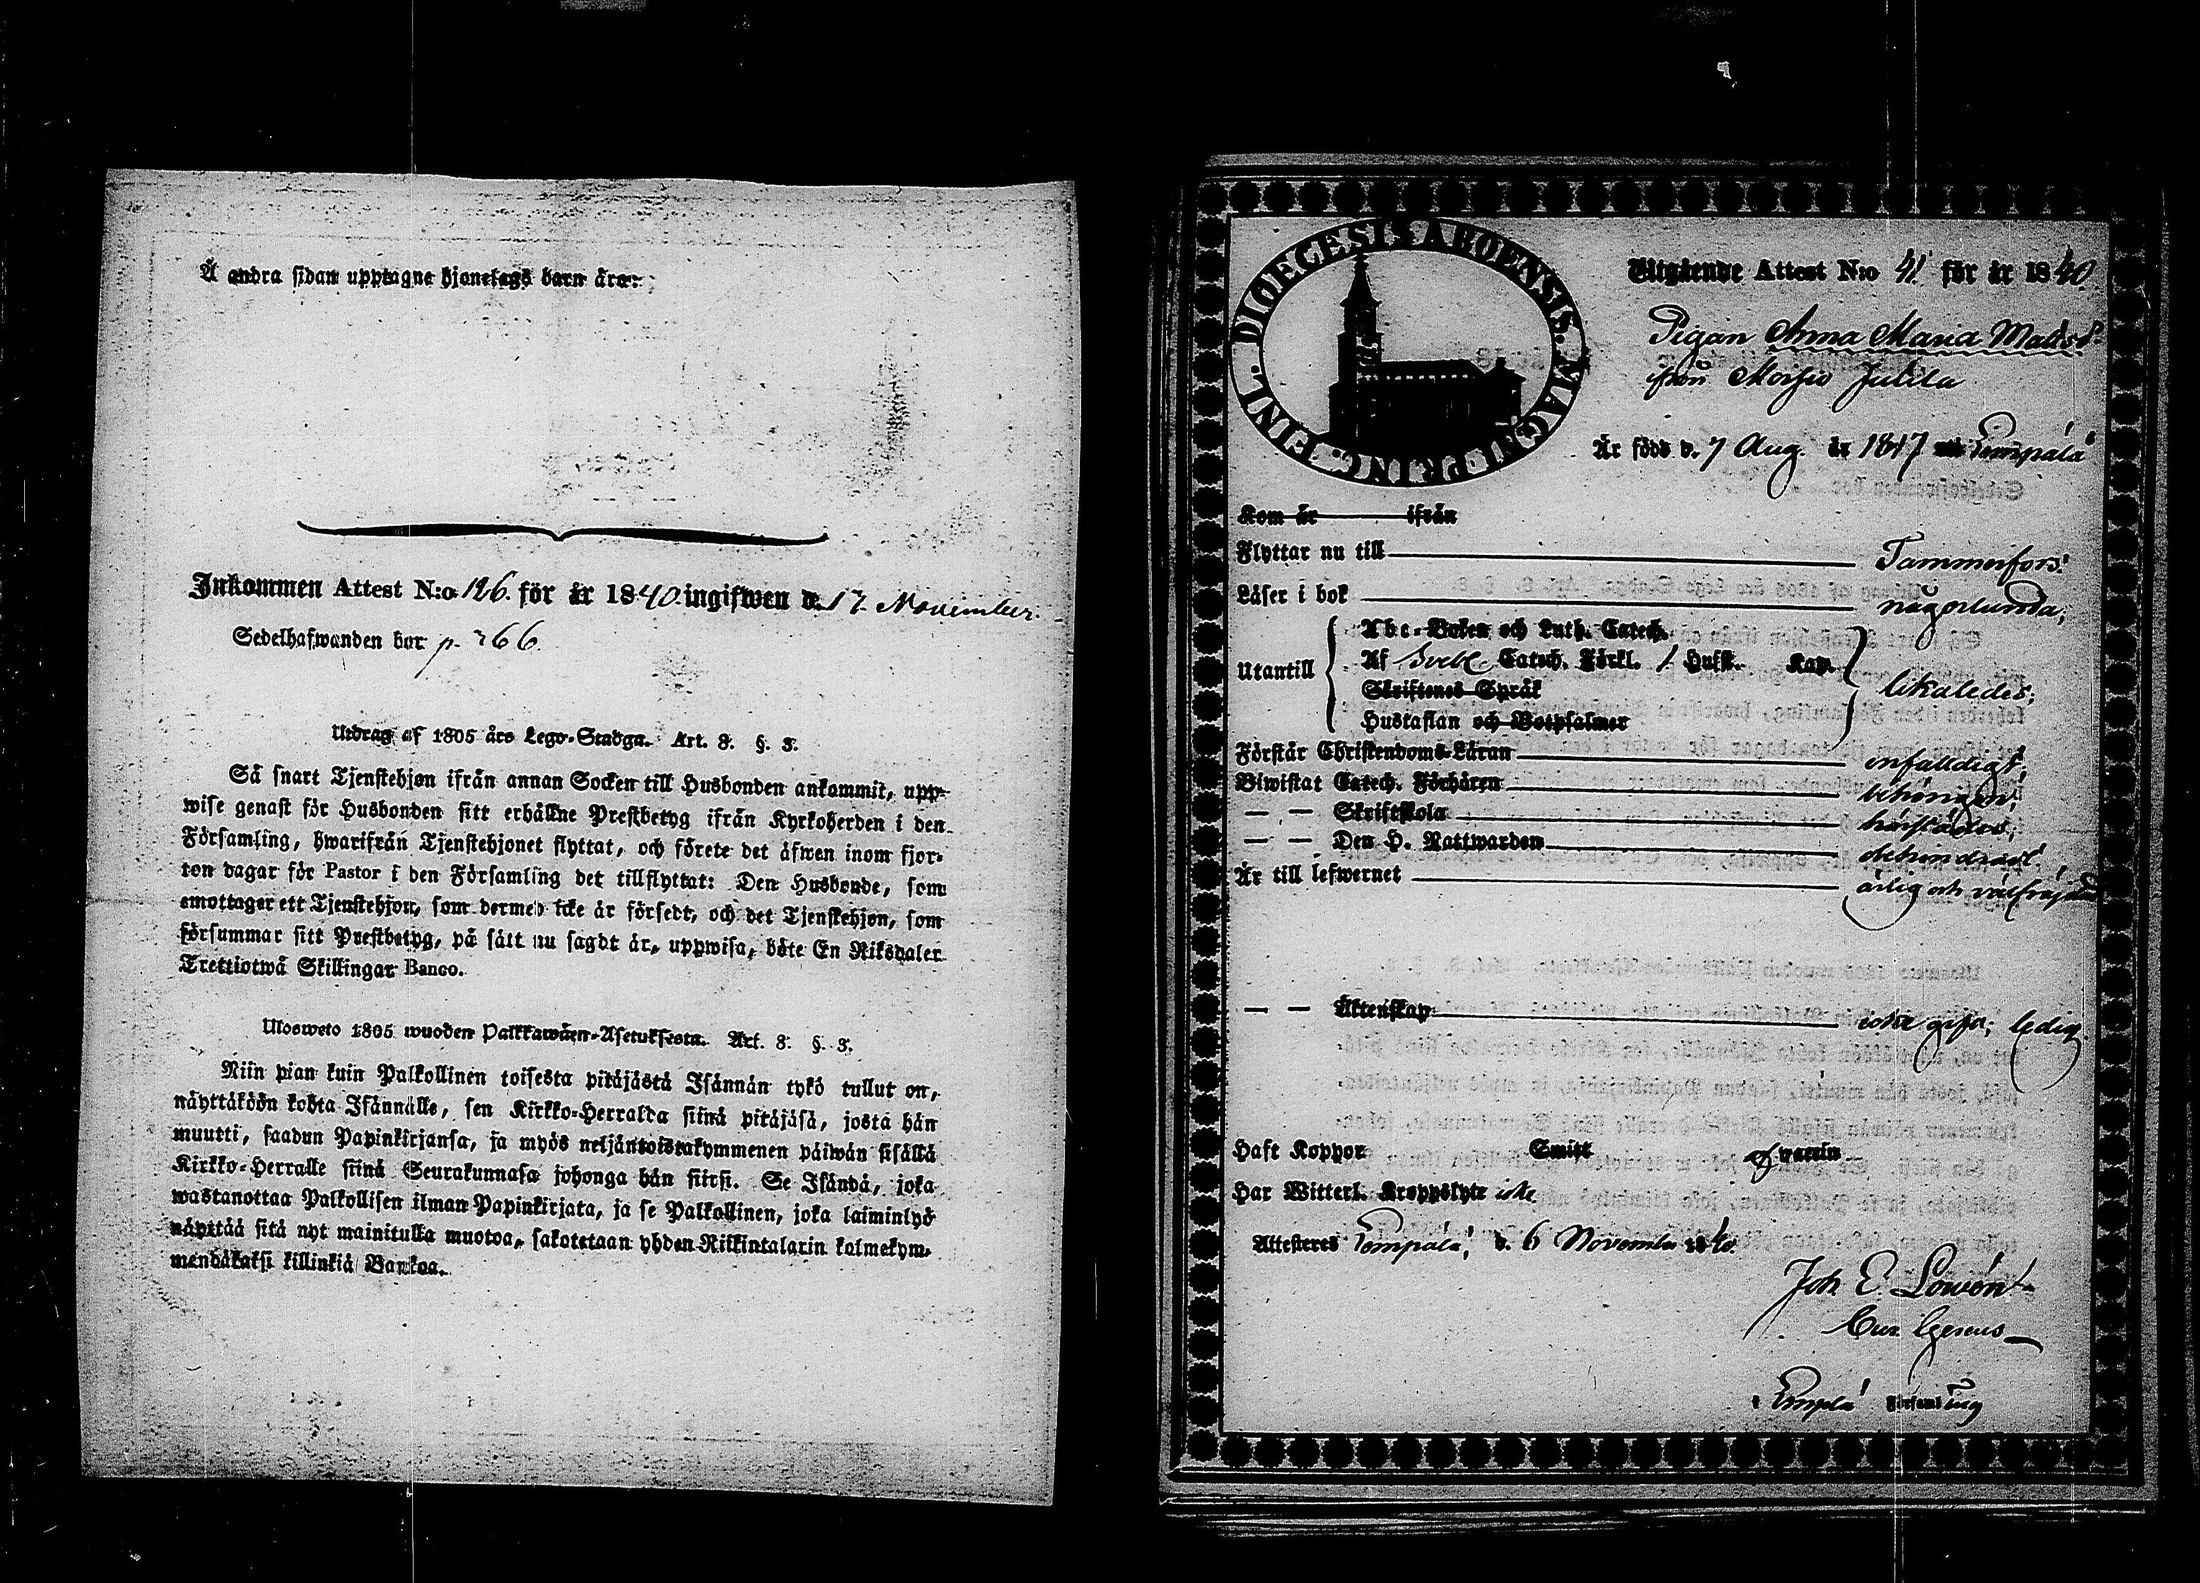 Å andra sidan upptagne hjonelags barn äro:
Inkommen Attest N:o 126. för år 1840. ingifwen d. 17. November.
Sedelhafwanden bor p. 266.
Utdrag af 1805 års Lego-Stadga. Art. 3. §. 3.
Så snart Tjenstehjon ifrån annan Socken till Husbonden ankommit, upp-
wise genast för Husbonden sitt erhållne Prestbetyg ifrån Kyrkoherden i den
Församling, hwarifrån Tjenstehjonet flyttat, och förete det äfwen inom fjor-
ton dagar för Pastor i den Församling det tillflyttat: Den Husbonde, som
emottager ett Tjenstehjon, som dermed icke är försedt, och det Tjenstehjon, som
försummar sitt Prestbetyg, på sätt nu sagdt är, uppwisa, böte En Riksdaler
Trettiotwå Skillingar Banco.
Ulosweto 1805 wuoden Palkkawäen-Asetuksesta. Art. 3. §. 3.
Niin pian kuin Palkollinen toisesta pitäjästä Isännän tykö tullut on,
näyttäköön kohta Isännälle, sen Kirkko-Herralda siinä pitäjäsä, josta hän
muutti, saadun Papinkirjansa, ja myös neljäntoistakymmenen päiwän sisällä
Kirkko-Herralle siinä Seurakunnasa johonga hän siirsi. Se Isändä, joka
wastanottaa Palkollisen ilman Papinkirjata, ja se Palkollinen, joka laiminlyö
näyttää sitä nyt mainitulla muotoa, sakotetaan yhden Riikintalarin kolmekym-
mendäkaksi killinkiä Bankoa.
DIOECESIS ABOENSIS. MAGNI PRINC. FINL.
Utgående Attest N:o 41 för år 1840.
Pigan Anna Maria Matsd:r
från Moisio Jutila
Är född d. 7 Aug. år 1817 Lempälä
Kom år ifrån
Flyttar nu till Tammerfors.
Läser i bok någorlunda,
Abc-Boken och Luth. Catech.
Utantill Af Sveb. Catech. Förkl. 1 Hufst. Kap. likaledes,
Skriftenes Språk
Hustaflan och Botpsalmer
Förstår Christendoms-Läran enfaldigt,
Biwistat Catech. Förhören behörigen,
— — Skriftskola härstädes,
— — Den H. Nattwarden
Är till lefwernet ärlig och välfräjdad
— — Äktenskap icke gift, ledig.
Haft Koppor Smitt Swaren
Har Witterl. Kroppslyte icke
Attesteres Lempälä, d. 6 November 1840.
Joh E.
Cur. Gerens
i Lempälä Församling